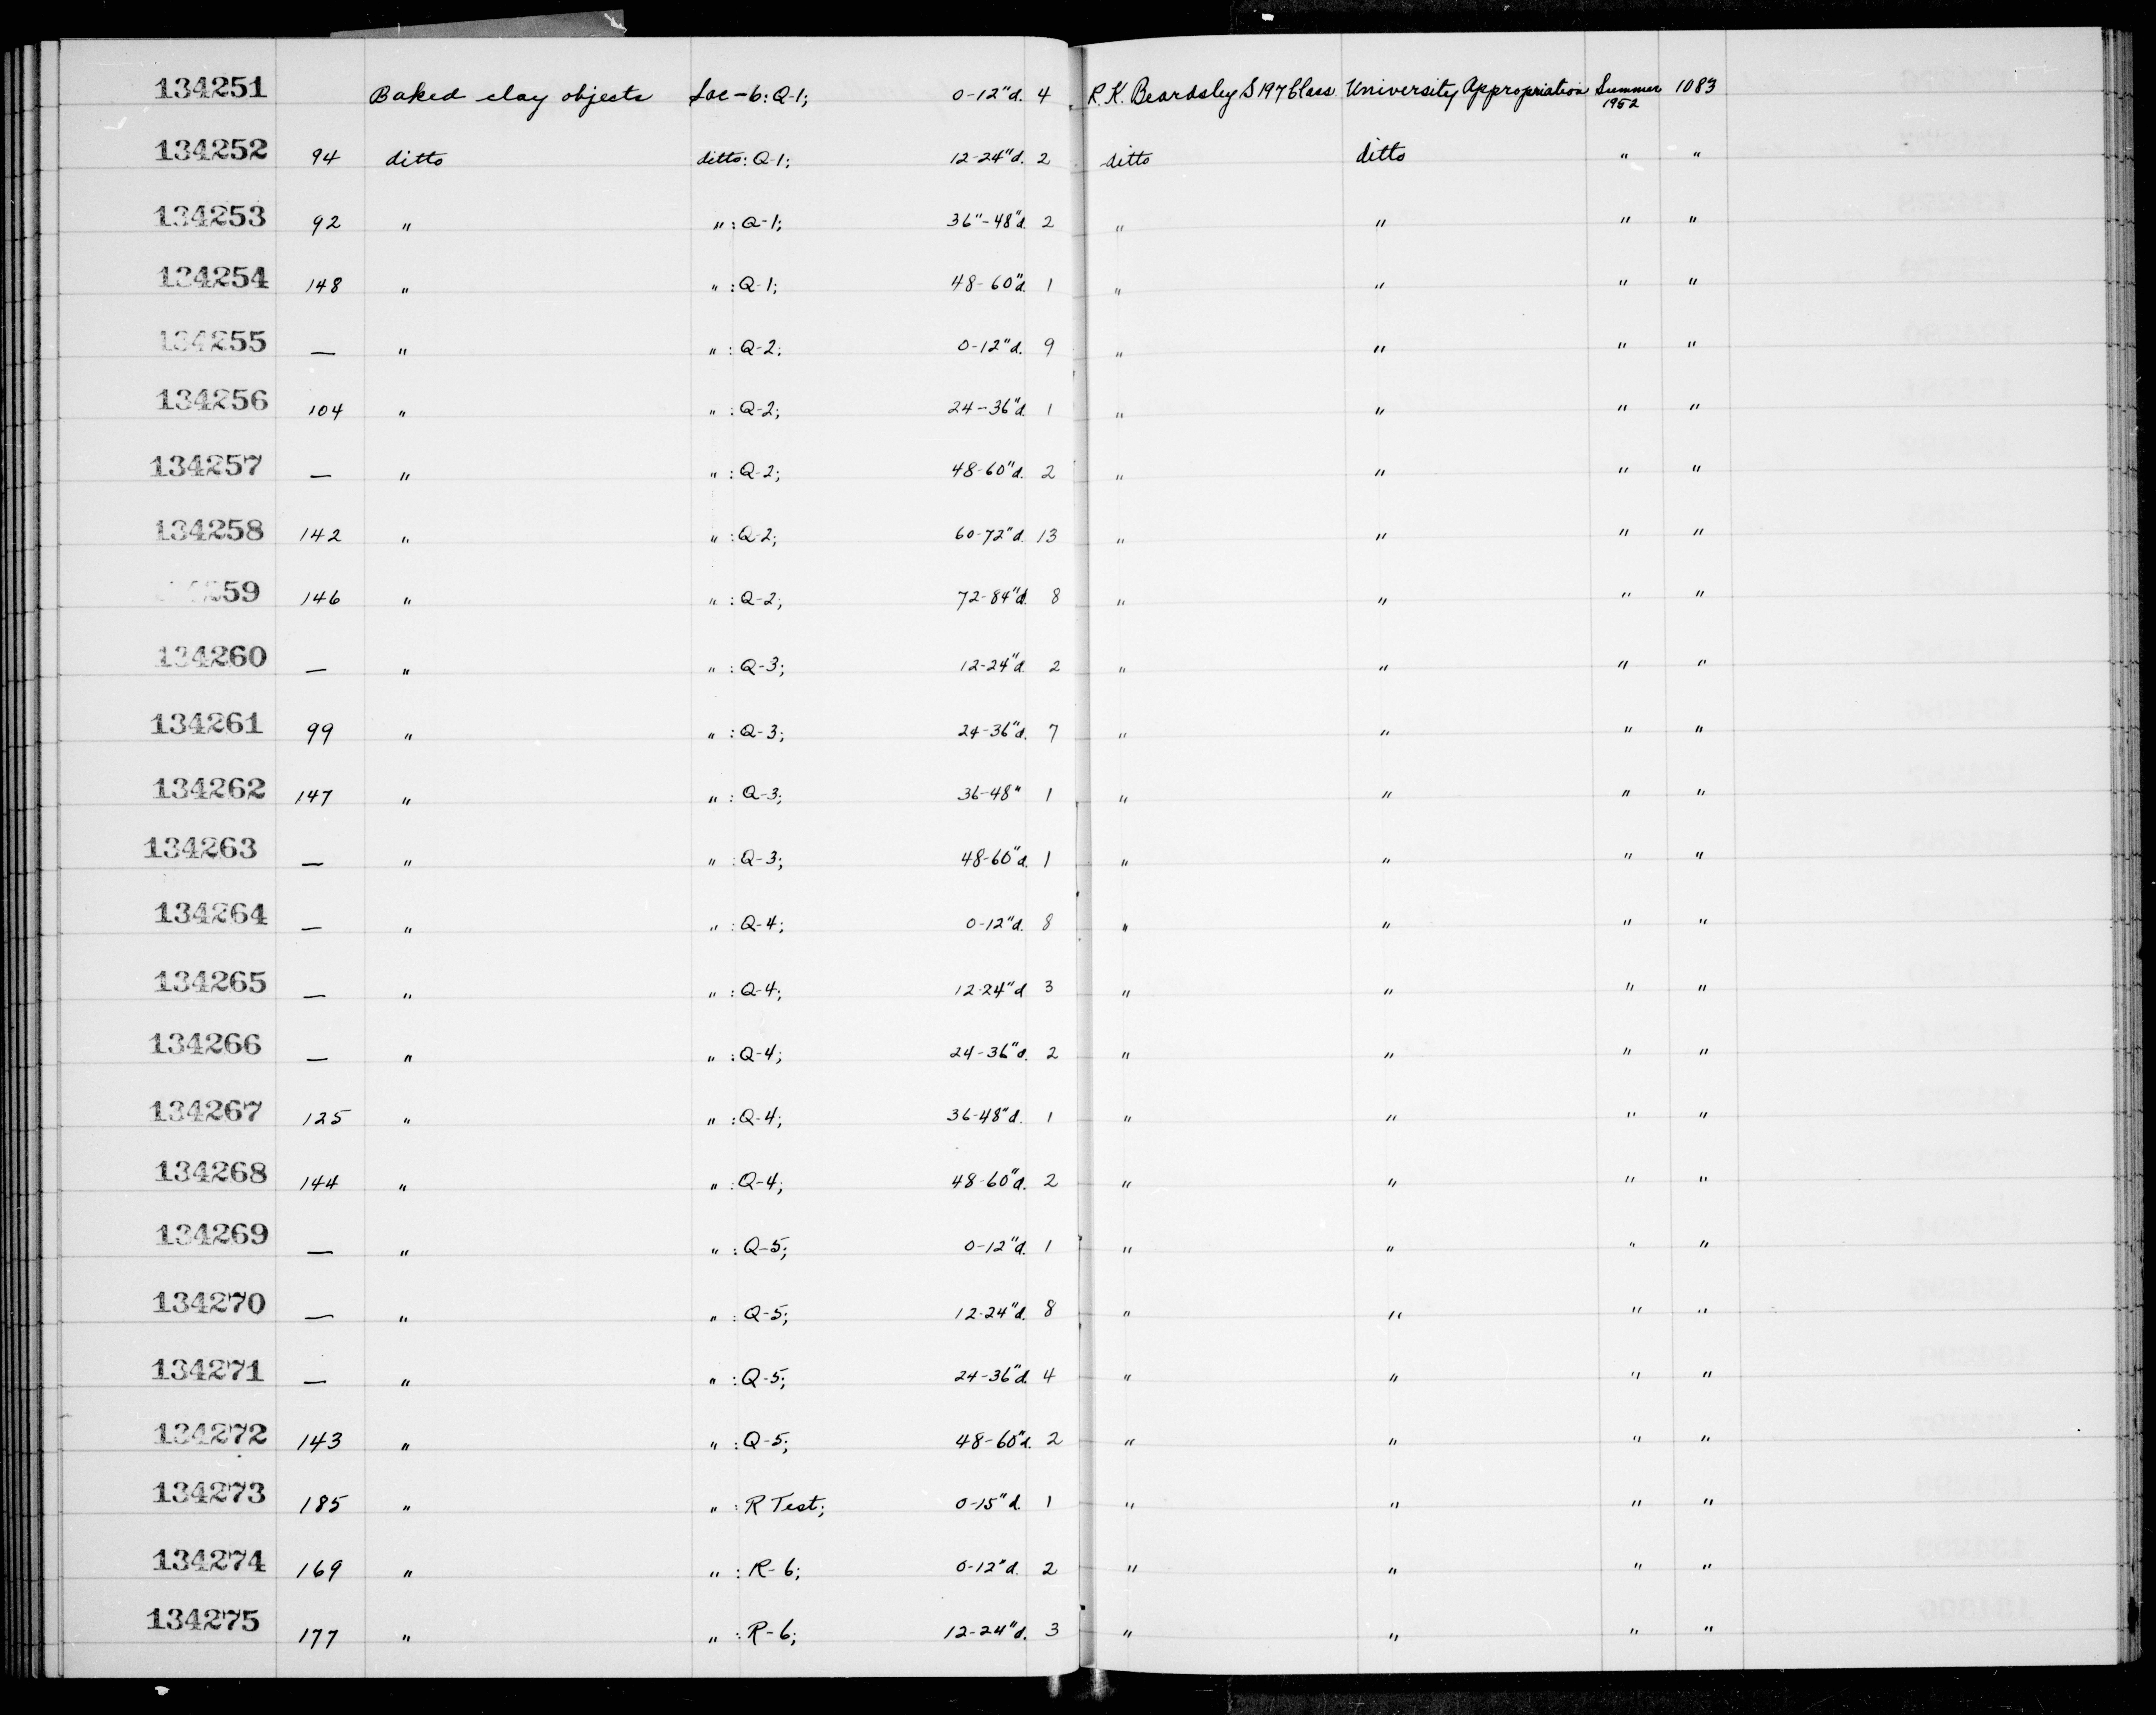 134251 Baked clay objects Sac-6: Q-1; 0-12"d. 4 R.K. Beardsley S197 Class University Appropriation Summer 1952 1083
134252 94 ditto ditto: Q-1; 12-24"d. 2 ditto ditto " "
134253 92 " " : Q-1; 36"-48"d. 2 " " " "
134254 148 " " : Q-1; 48-60"d. 1 " " " "
134255 — " " : Q-2; 0-12"d. 9 " " " "
134256 104 " " : Q-2; 24-36"d. 1 " " " "
134257 — " " : Q-2; 48-60"d. 2 " " " "
134258 142 " " : Q-2; 60-72"d. 13 " " " "
259 146 " " : Q-2; 72-84"d. 8 " " " "
134260 — " " : Q-3; 12-24"d. 2 " " " "
134261 99 " " : Q-3; 24-36"d. 7 " " " "
134262 147 " " : Q-3; 36-48" 1 " " " "
134263 — " " : Q-3; 48-60"d. 1 " " " "
134264 — " " : Q-4; 0-12"d. 8 " " " "
134265 — " " : Q-4; 12-24"d 3 " " " "
134266 — " " : Q-4; 24-36"d. 2 " " " "
134267 125 " " : Q-4; 36-48"d. 1 " " " "
134268 144 " " : Q-4; 48-60"d. 2 " " " "
134269 — " " : Q-5; 0-12"d. 1 " " " "
134270 — " " : Q-5; 12-24"d. 8 " " " "
134271 — " " : Q-5; 24-36"d. 4 " " " "
134272 143 " " : Q-5; 48-60"d. 2 " " " "
134273 185 " " : R Test; 0-15"d. 1 " " " "
134274 169 " " : R-6; 0-12"d. 2 " " " "
134275 177 " " : R-6; 12-24"d. 3 " " " "